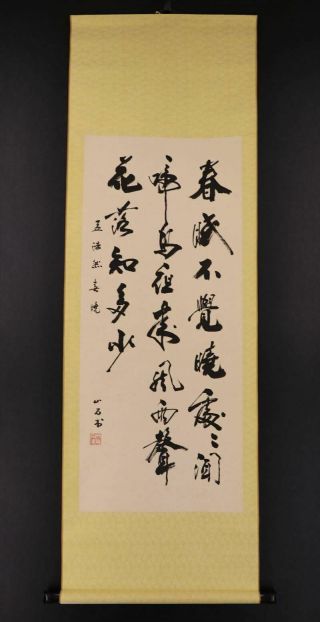 春眠不覺曉處〻聞
啼鳥夜来風雨聲
花落知多少
孟浩然春曉
山石书